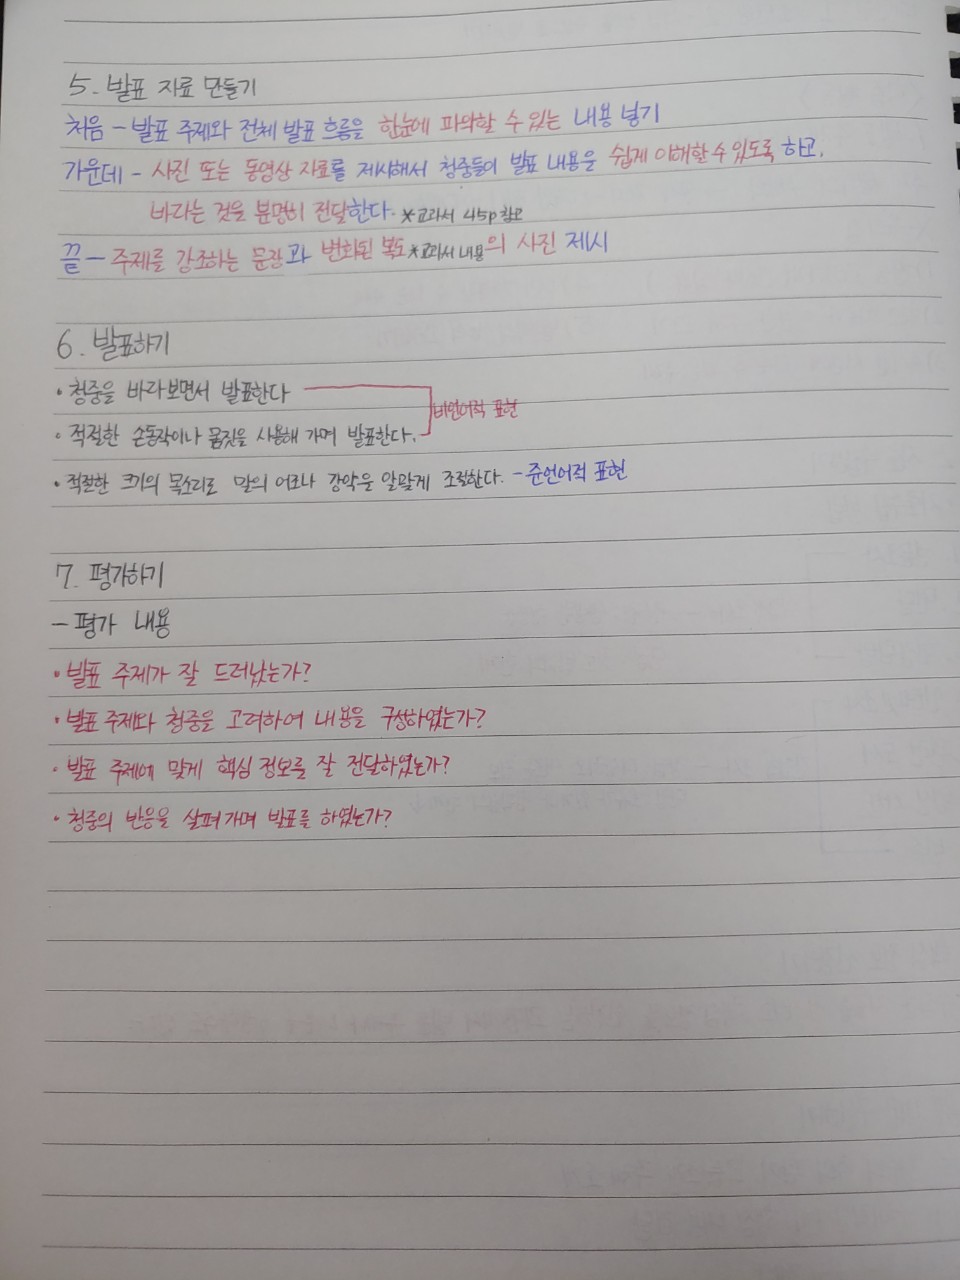 5. 발표 자료 만들기
처음 - 발표 주제와 전체 발표 흐름을 한눈에 파악할 수 있는 내용 넣기
가운데 - 사진 또는 동영상 자료를 제시해서 청중들의 발표 내용을 쉽게 이해할 수 있도록 하고,
바라는 것을 분명히 전달한다. *교과서 45p 참고
끝 - 주제를 강조하는 문장과 변화된 복도 *교과서 내용의 사진 제시
6. 발표하기
• 청중을 바라보면서 발표한다
비언어적 표현
• 적절한 손동작이나 몸짓을 사용해 가며 발표한다.
• 적절한 크기의 목소리로 말의 어조나 강약을 알맞게 조절한다. - 준언어적 표현
7. 평가하기
- 평가 내용
• 발표 주제가 잘 드러났는가?
• 발표 주제와 청중을 고려하여 내용을 구성하였는가?
• 발표 주제에 맞게 핵심 정보를 잘 전달하였는가?
• 청중의 반응을 살펴 가며 발표를 하였는가?